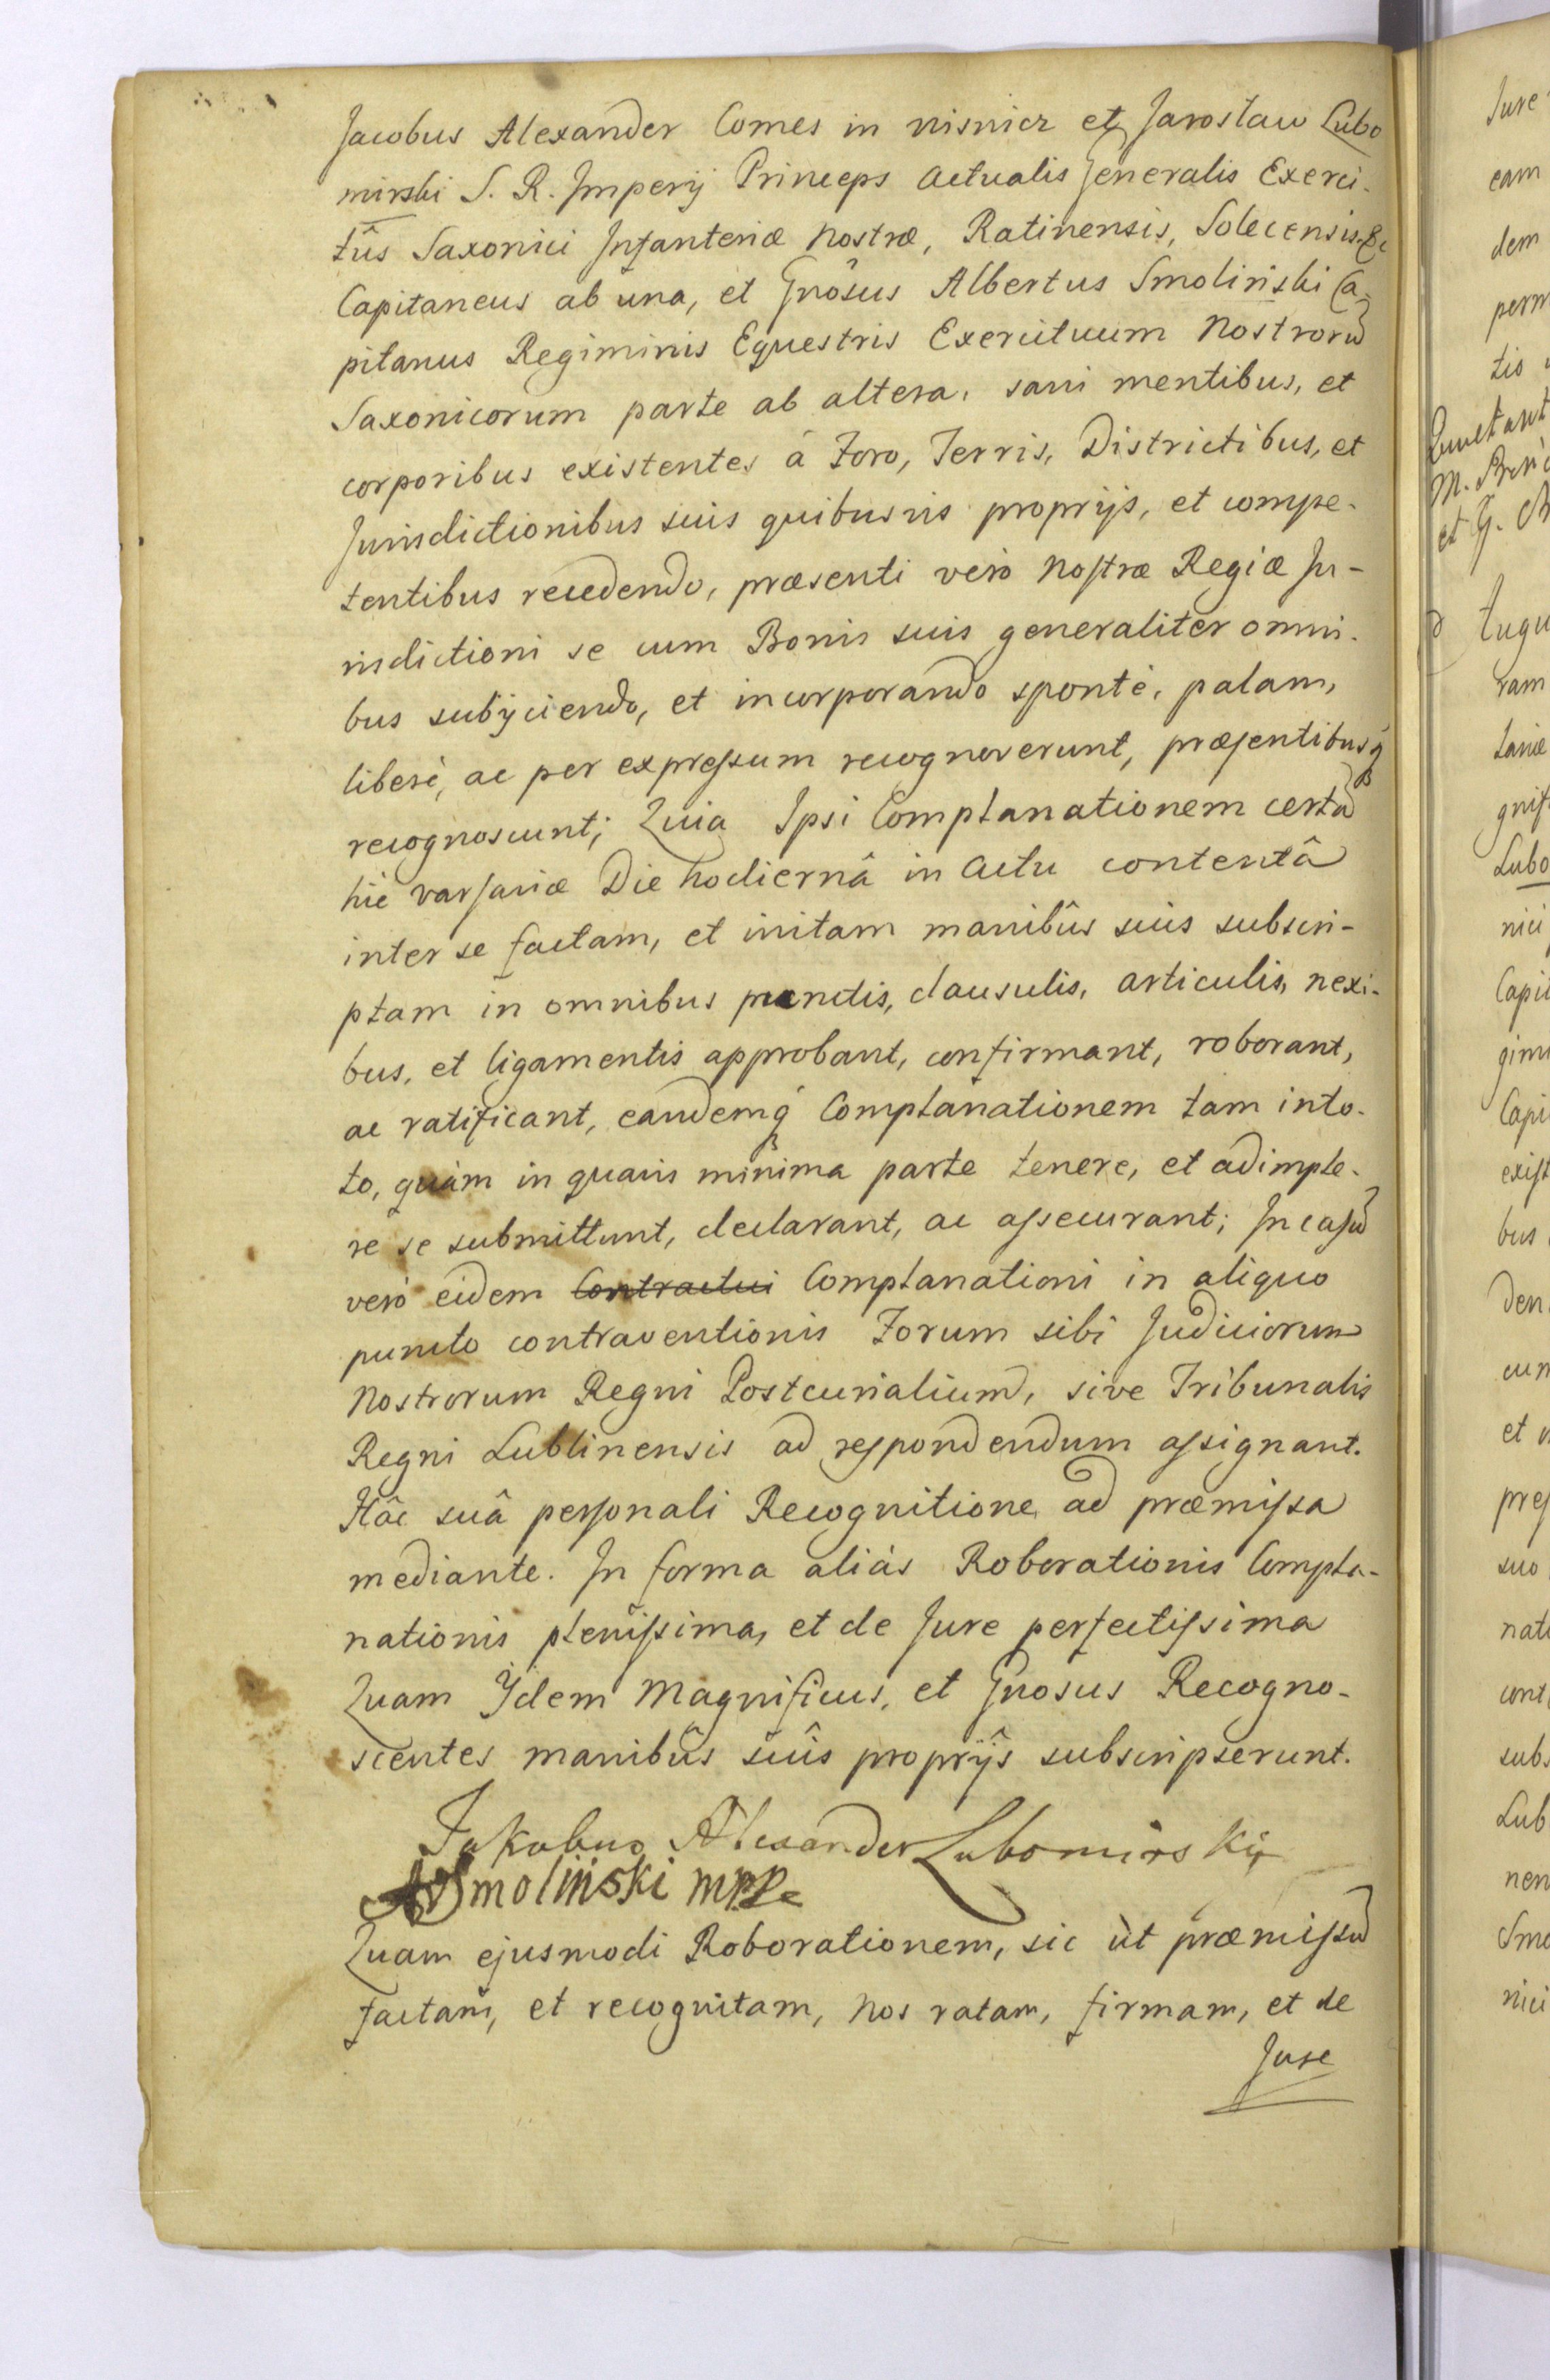 Jacobus Alexander Comes in Wisnicz et Jaroslaw Lubo
mirski S. R. Imperij Princeps Actualis Generalis Exerci-
tûs Saxonici Infanteriæ Nostræ, Ratinensis, Solecensis &c
Capitaneus ab una, et Gnôsus Albertus Smolinski Ca-
pitanus Regiminis Equestris Exercituum Nostrorũ
Saxonicorum parte ab altera, sani mentibus, et
corporibus existentes à Foro, Terris, Districtibus, et
Jurisdictionibus suis quibusvis proprijs, et compe-
tentibus recedendo, præsenti verò Nostræ Regiæ Ju-
risdictioni se cum Bonis suis generaliter omni-
bus subÿciendo, et incorporando spontè, palam,
liberè, ac per expressum recognoverunt, præsentibusq́
recognoscunt; Quia Ipsi Complanationem certã
hic Varsaviæ Die hodiernâ in Actu contentâ
inter se factam, et initam manibûs suis subscri-
ptam in omnibus punctis, clausulis, articulis, nexi-
bus, et ligamentis approbant, confirmant, roborant,
ac ratificant, eandemq́ Complanationem tam in to-
to, quàm in quavis minima parte tenere, et adimple-
re se submittunt, declarant, ac assecurant; In casũ
verò eidem Contractui Complanationi in aliquo
puncto contraventionis Forum sibi Judiciorum
Nostrorum Regni Postcurialium, sive Tribunalis
Regni Lublinensis ad respondendum assignant.
Hâc suâ personali Recognitione ad præmissa
mediante. In forma aliàs Roborationis Compla-
nationis plenissima, et de Jure perfectissima
Quam Ijdem Magnificus, et Gnosus Recogno-
scentes manibûs suîs proprijs subscripserunt.
Jakobus Alexander Lubomirskÿ
A Smolinski mpp
Quam ejusmodi Roborationem, sic ùt præmissũ
factam, et recognitam, Nos ratam, firmam, et de
Jure
Jure
eam
dem
perm
tio
M.
et G.
ram
taniæ
Lubo
nici
bus
den
cum
et
suo
nati
cont
subs
Lub
nen
Smo
nici